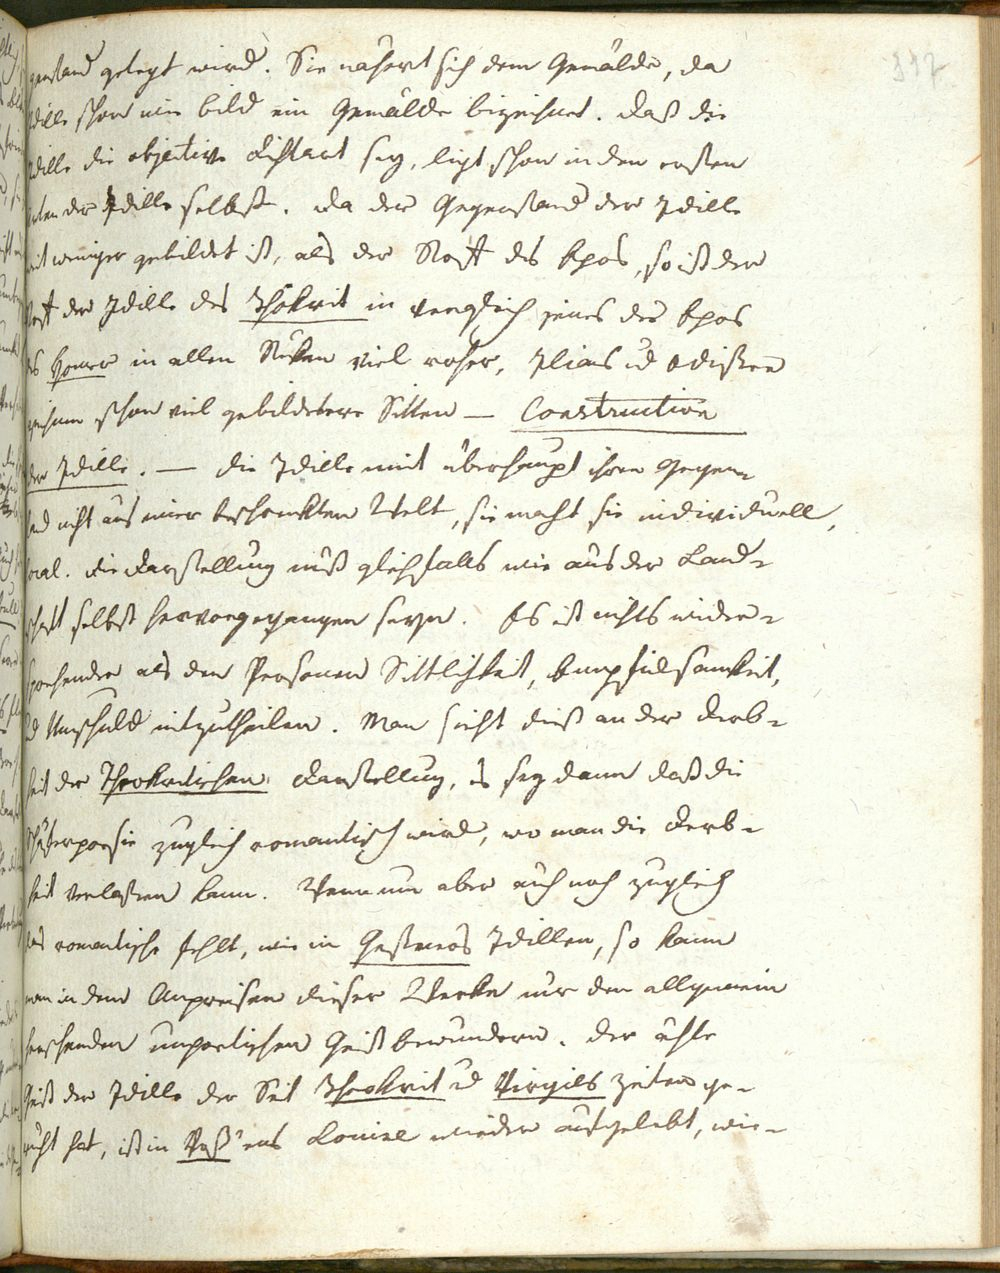 genstand gelegt wird. Sie nähert sich dem Gemälde, da
Idille schon wie bild ein Gemälde bezeichnet. daß die
Idille die objective dichtart sey, ligt schon in den ersten
der Idille selbst. da der Gegenstand der Idille
weit weniger gebildet ist, als der Stoff des Epos, so ist der
Stoff der Idille des Theokrit in vergleich jenes des Epos
des Homer in allen Stüken viel roher, Ilias ud Odißee
schon viel gebildetere Sitten — Construction
der Idille. — die Idille nimt überhaupt ihren Gegen-
stand nicht aus einer beschränkten Welt, sie macht sie individuell,
local. die darstellung muß gleichfalls wie aus der Land-
schaft selbst hervorgegangen seyn. Es ist nichts wider-
sprechender als den Personen Sittlichkeit, Empfindsamkeit,
ud Unschuld mitzutheilen. Man sieht dieß an der derb-
heit der Theokritischen darstellung, es sey dann daß die
Schäferpoesie zugleich romantisch wird, wo man die derb-
heit verlaßen kann. Wenn nun aber auch noch zugleich
das romantische fehlt, wie in Geßners Idillen, so kann
man in dem Anpreisen dieser Werke nur den allgemein
herschenden unpoetischen Geist bewundern. der ächte
Geist der Idille der Seit Theokrit ud Virgils zeiten ge-
ruht hat, ist in Voß'ens Louise wieder aufgelebt, wie-
117